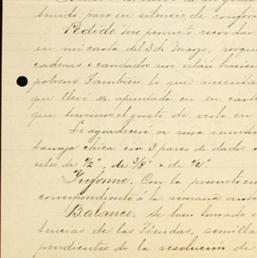 buido paso en silencio, de conform
Pedido Me permito recordar
en mi carta del 3 de Marzo, porque
cadenas y candados nos están hacien
potrero. También lo que necesita
que llevó apuntado en su carte
que tuvimos el gusto de verlo en
Le agradeceré se sirva enviar
rraja chica con 3 pares de dados
estos de 1/2", de 3/8" y de 1/4".
Informe. Con la presente en
correspondiente a la semana ante
Balance. Se han tomado
tencias de las tiendas, semilla
pendientes de la resolución de